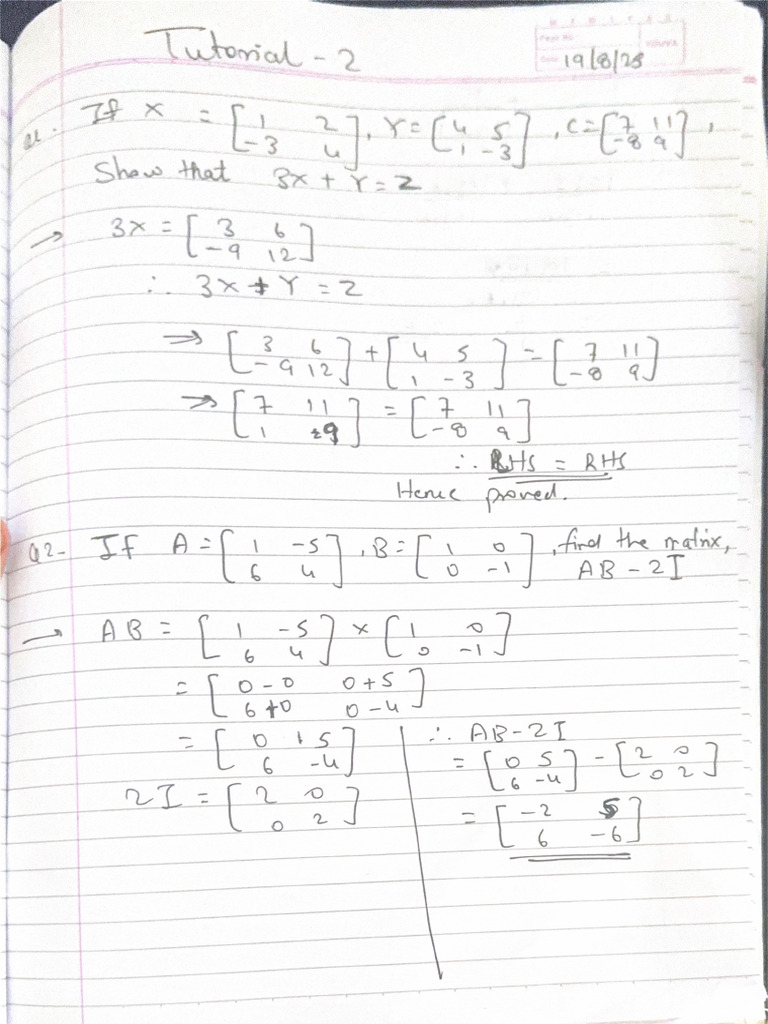 Tutorial - 2
Page No.
Date 19/8/25
Q1. If X = [1 2 -3 4], Y = [4 5 1 -3], C = [7 11 -8 9],
Show that 3X + Y = Z
→ 3X = [3 6 -9 12]
∴ 3X + Y = Z
⇒ [3 6 -9 12] + [4 5 1 -3] = [7 11 -8 9]
⇒ [7 11 1 9] = [7 11 -8 9]
∴ LHS = RHS
Hence proved.
Q2- If A = [1 -5 6 4], B = [1 0 0 -1], find the matrix,
AB - 2I
→ AB = [1 -5 6 4] × [1 0 0 -1]
= [0-0 0+5 6+0 0-4]
= [0 +5 6 -4]
2I = [2 0 0 2]
∴ AB-2I
= [0 5 6 -4] - [2 0 0 2]
= [-2 5 6 -6]